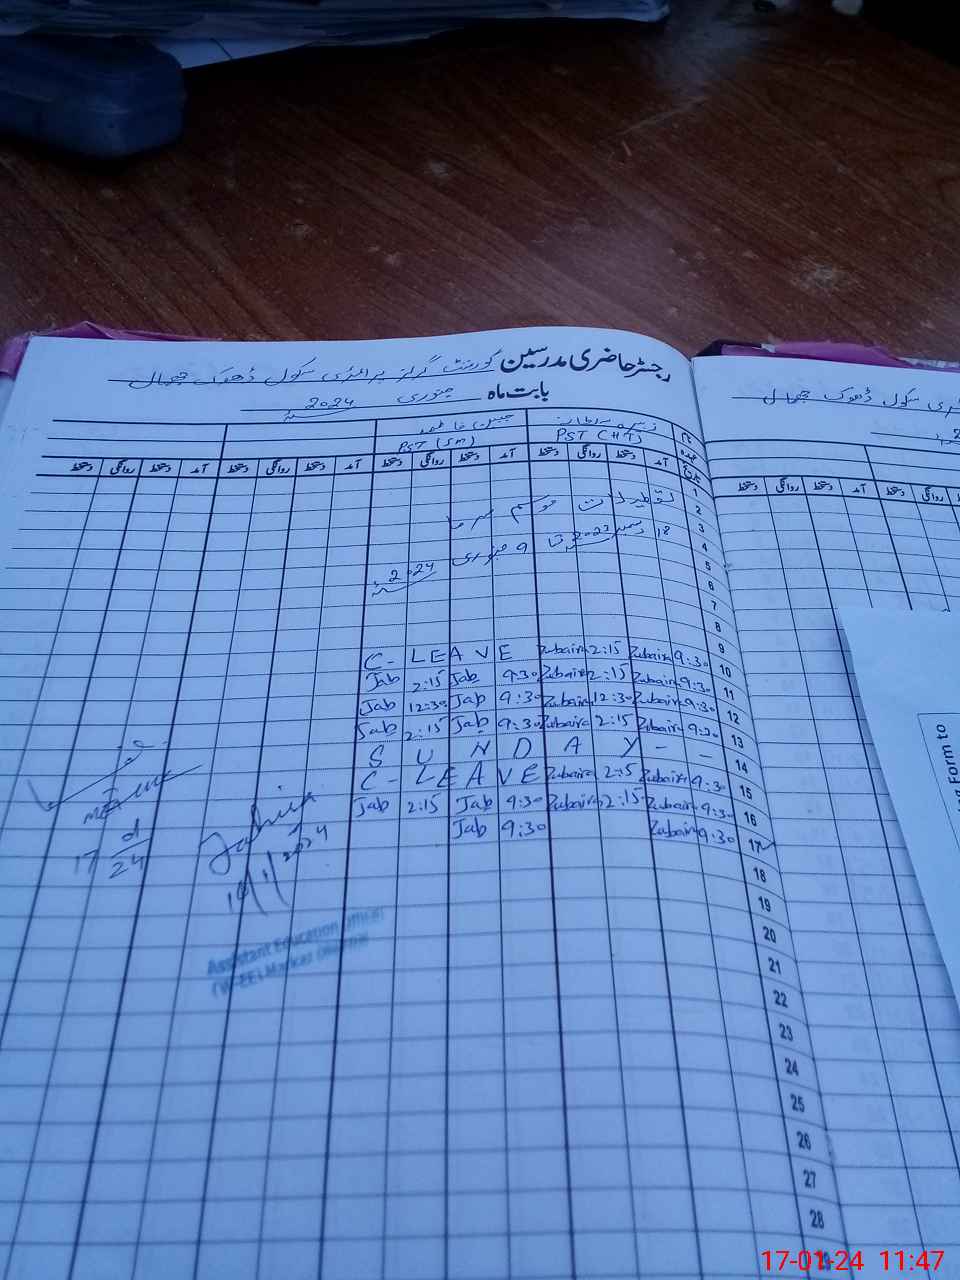 رجسٹر حاضری مدرسین گورنمنٹ گرلز پرائمری سکول ڈھوک جمال
بابت ماہ جنوری 2024
نام
عہدہ PST (HT) PST
تاریخ آمد دستخط روانگی دستخط آمد دستخط روانگی دستخط آمد دستخط روانگی دستخط آمد دستخط روانگی دستخط
1
2 تعطیلات موسم سرما
3
4 18 دسمبر 2023 تا 9 جنوری 2024
5
6
7
8
9
10 9:30 Zubaira 2:15 Zubaira C- LEAVE
11 9:30 Zubaira 2:15 Zubaira 9:30 Jab 2:15 Jab
12 9:30 Zubaira 12:30 Zubaira 9:30 Jab 12:30 Jab
13 9:30 Zubaira 2:15 Zubaira 9:30 Jab 2:15 Jab
14 S U N D A Y - -
15 9:30 Zubaira 2:5 Zubaira C- LEAVE
16 9:30 Zubaira 2:15 Zubaira 9:30 Jab 2:15 Jab
17 9:30 Zubaira 9:30 Jab
18
19
20
21
22
23
24
25
26
27
28
16/1/2024
Assistant Education Officer
(W-EE) Markaz
17
24
سکول ڈھوک جمال
آمد دستخط روانگی دستخط
Form to
17-01-24 11:47